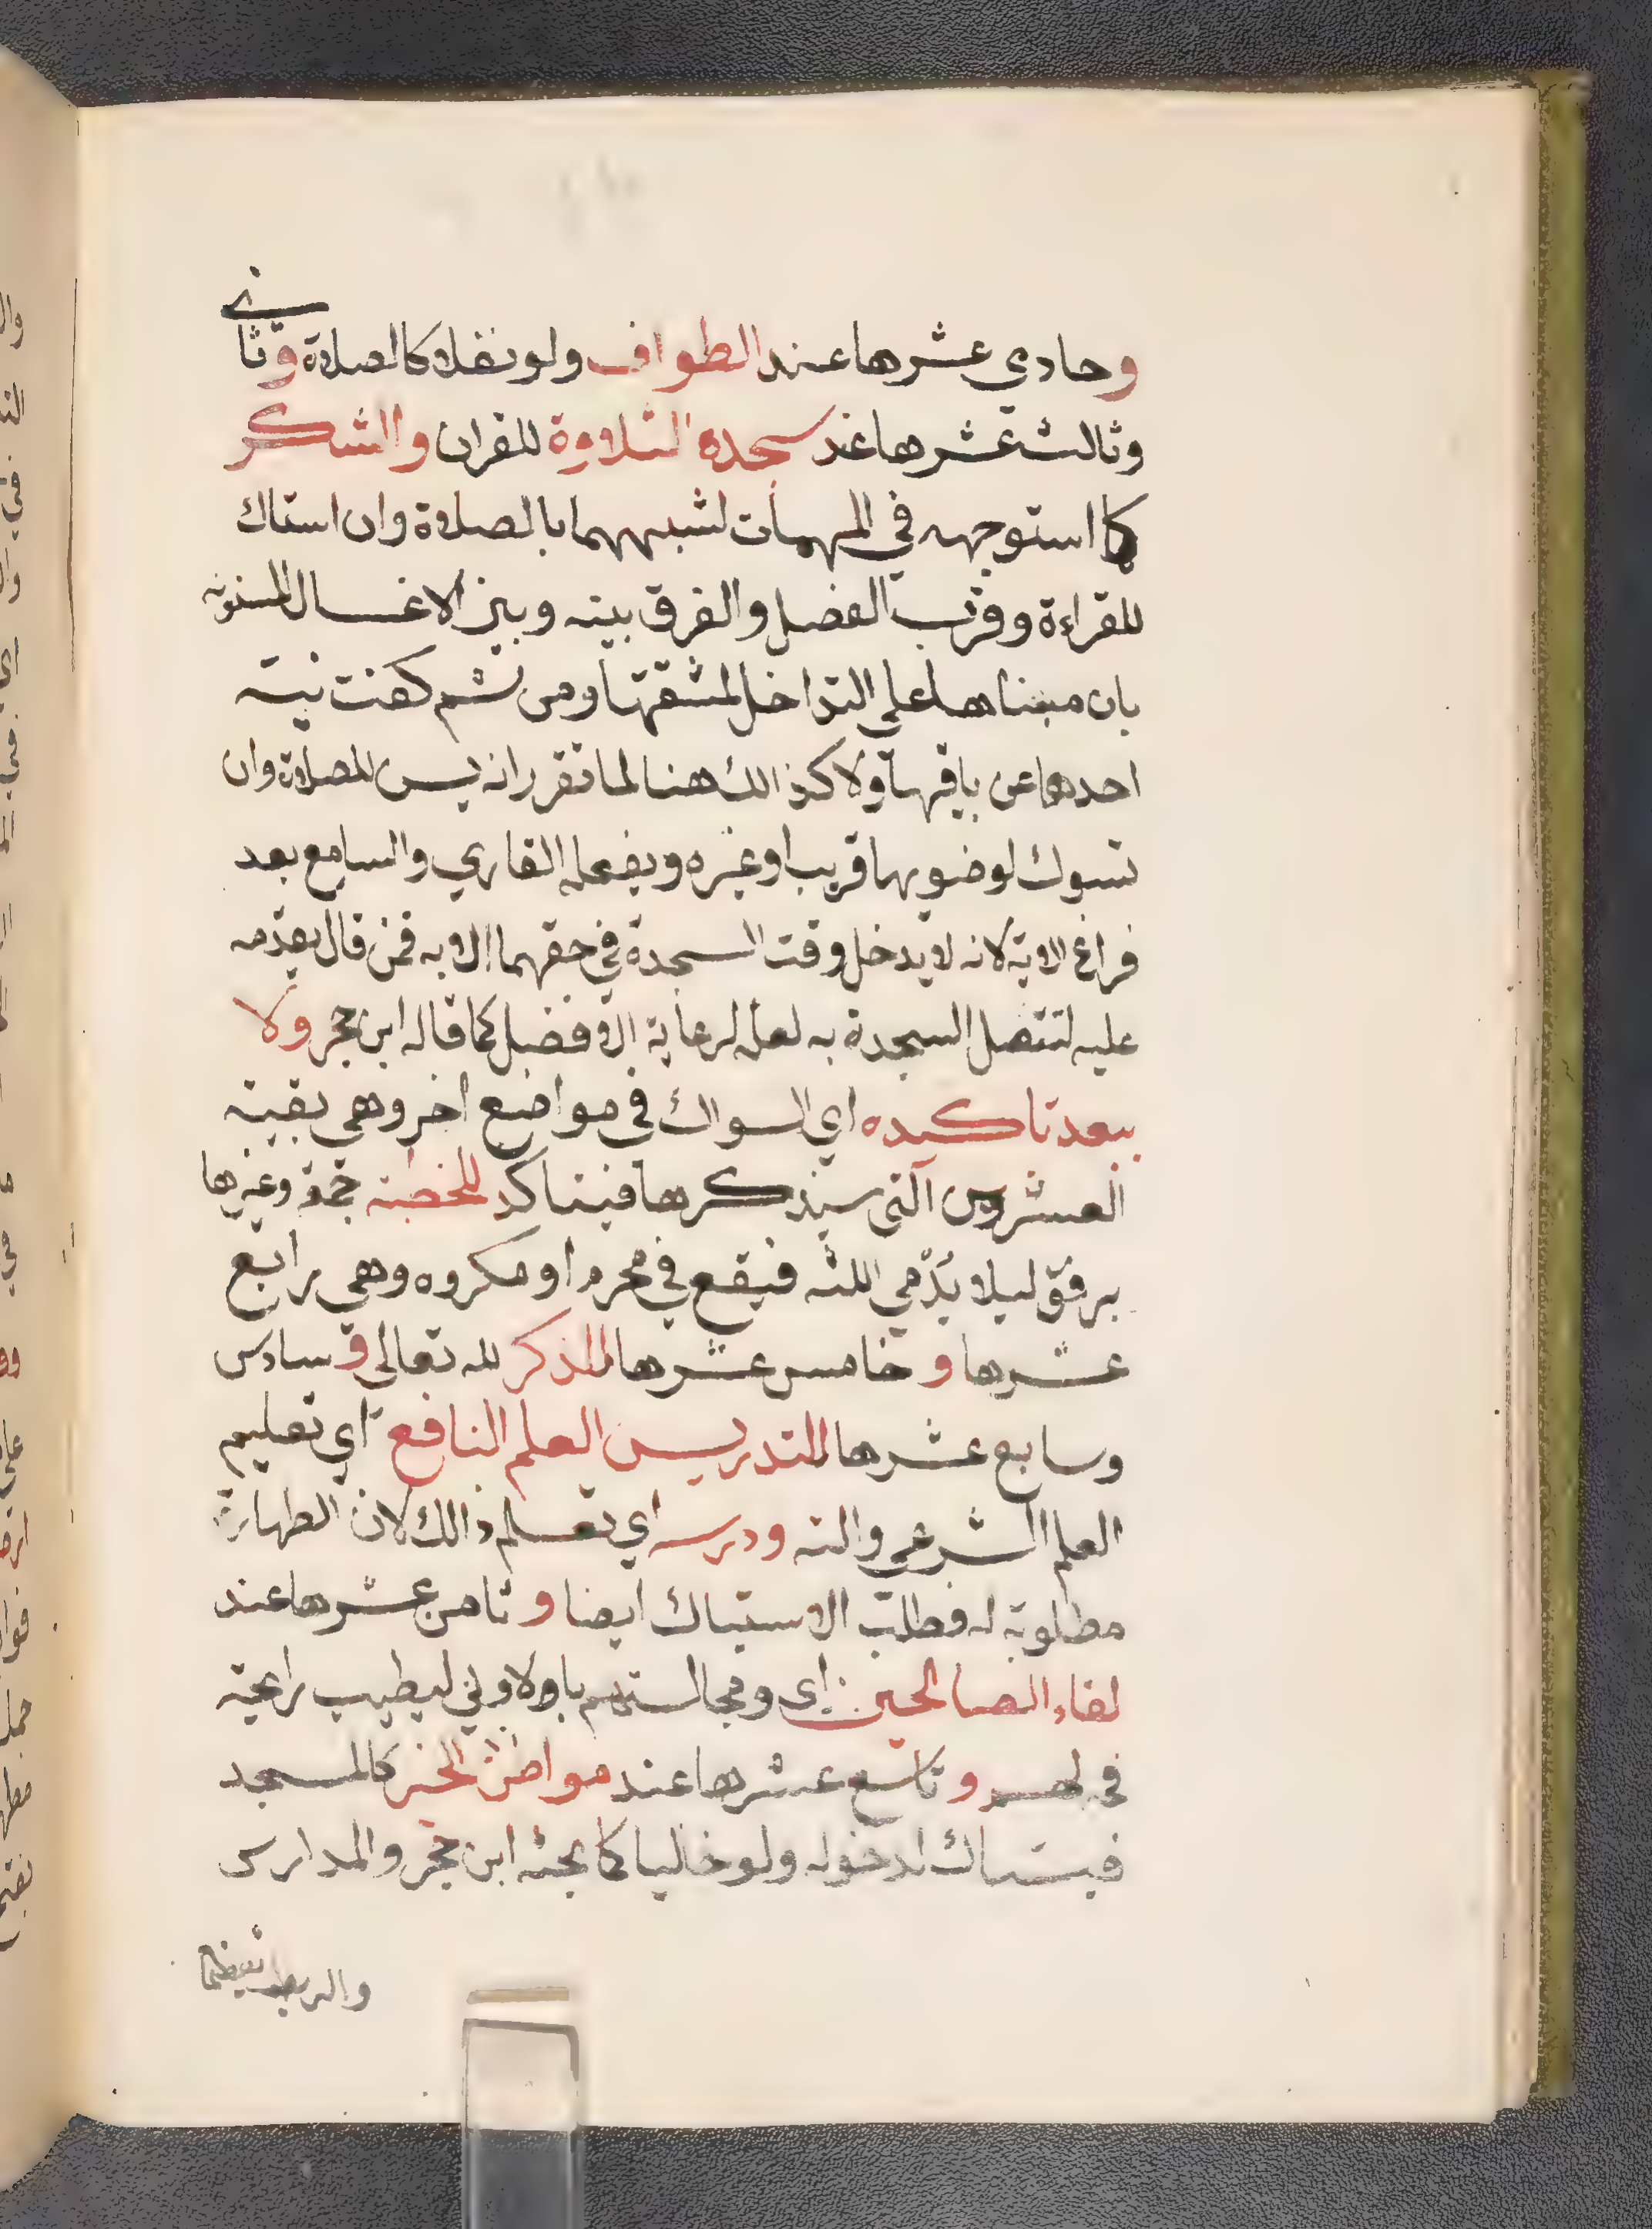 وحادي عشرها عند الطواف ولو نفلا كالصلاة وثاني
وثالث عشرها عند سجدة التلاوة للقران والشكر
كما استوجهه في المهمات لشبههما بالصلاة وان استاك
للقراءة وقرب الفصل والفرق بينه وبين الاغسال المسنونه
بان مبناها على التداخل لمشقتها ومن ثم كفت نية
احدها عن باقيها ولا كذالك هنا لما تقرر انه يسن للصلاة وان
تسوك لوضويها قريبا وغيره ويفعله القاري والسامع بعد
فراغ الاية لانه لا يدخل وقت السجدة في حقهما الا به فمن قال يقدمه
عليه لتتصل السجدة به لعله لرعاية الافضل كما قاله ابن حجر ولا
يبعد تاكيده اي السواك في مواضع اخر وهي بقية
العشرين التي سيذكرها فيتاكد للخطبة جمعة وغيرها
برفق ليلا يدمي اللثه فيقع في محرم او مكروه وهي رابع
عشرها و خامس عشرها للذكر لله تعالى و سادس
وسابع عشرها لتدريس العلم النافع اي تعليم
العلم الشرعي والته ودرسه اي تعلم ذالك لان الطهارة
مطلوبة له فطلب الاستياك ايضا و ثامن عشرها عند
لقاء الصالحين اي ومجالستهم بالاولى ليطيب رايحة
فم لهم و تاسع عشرها عند مواطن الخير كالمسجد
فيستاك لدخوله ولو خاليا كما بحثه ابن حجر والمدارس
والربط تعظيما